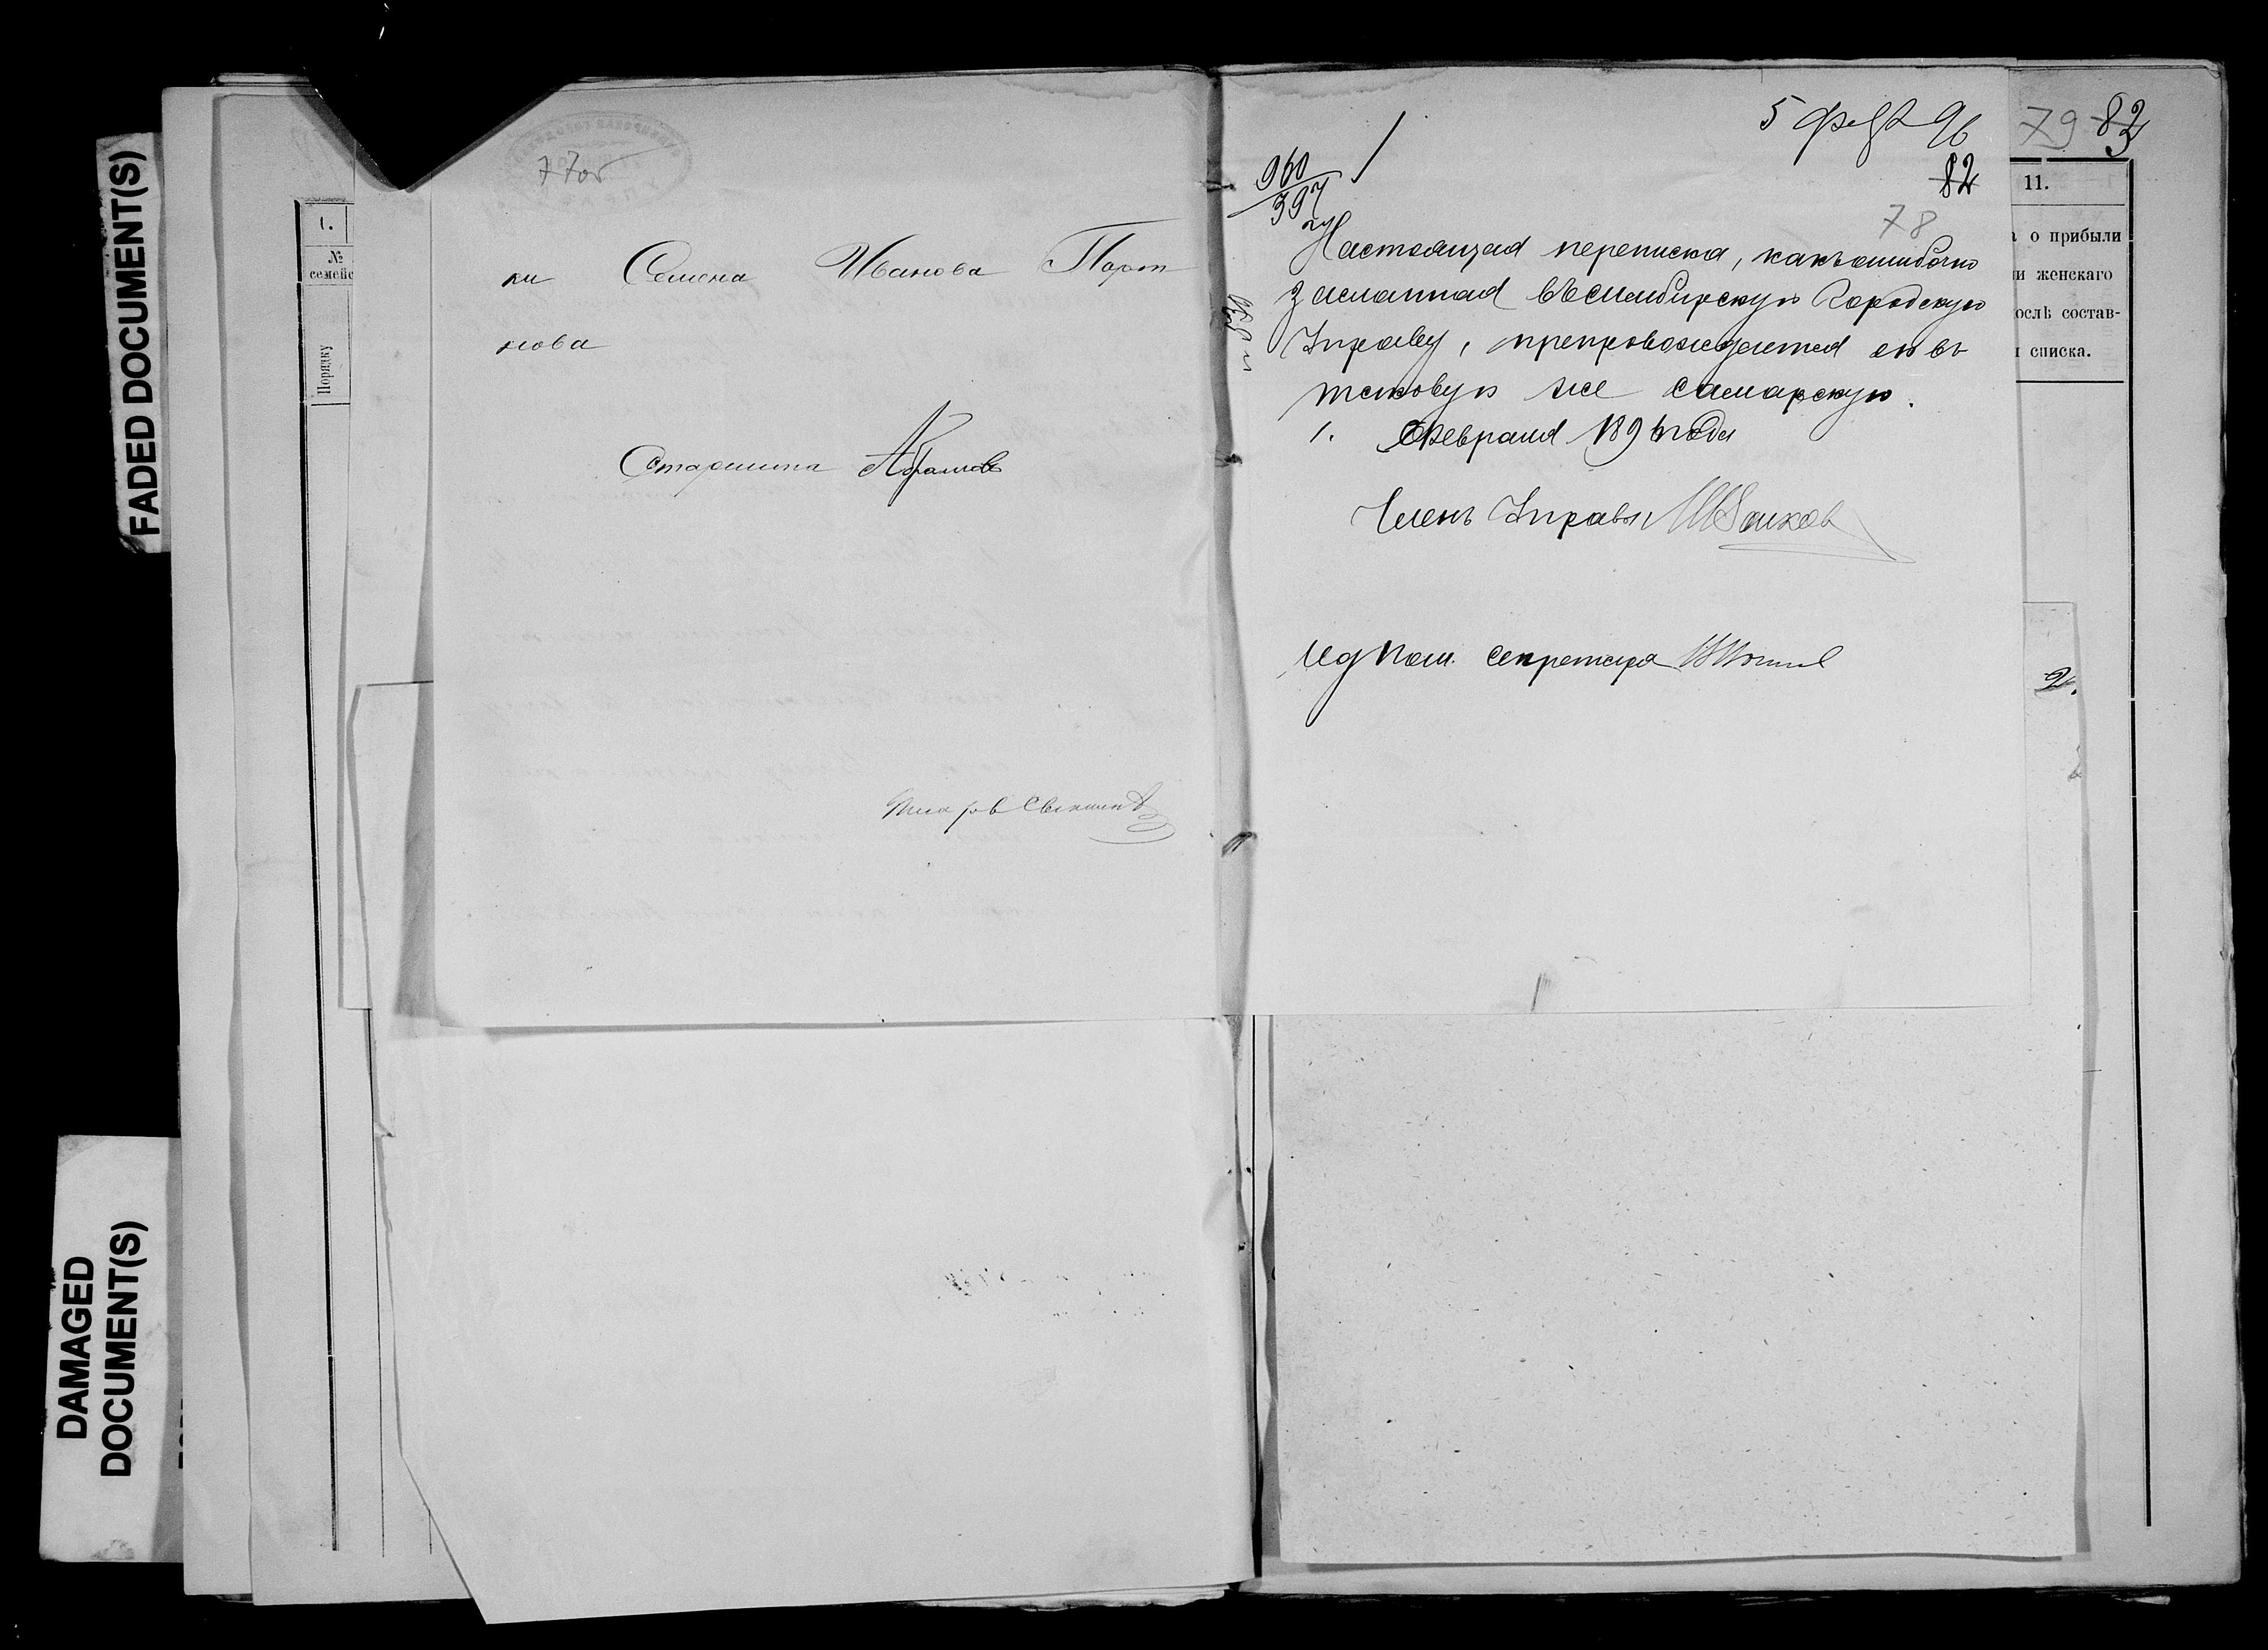 FADED DOCUMENT(S)
DAMAGED
DOCUMENT(S)
1.
№
семейс
Порядку
77об
ки Семена Иванова Порт
нова
Старшина Абрамовъ
Писарь
5 Фев 96
960
397
82
78
Настоящая переписка, какъ ошибочно
засланная въ Симбирскую Городскую
Управу, препровождается въ
таковую же Самарскую.
1. Февраля 1896 года
Членъ Управы
Секретаря
79 83
11.
о прибыли
и женскаго
ослѣ состав-
списка.
2.